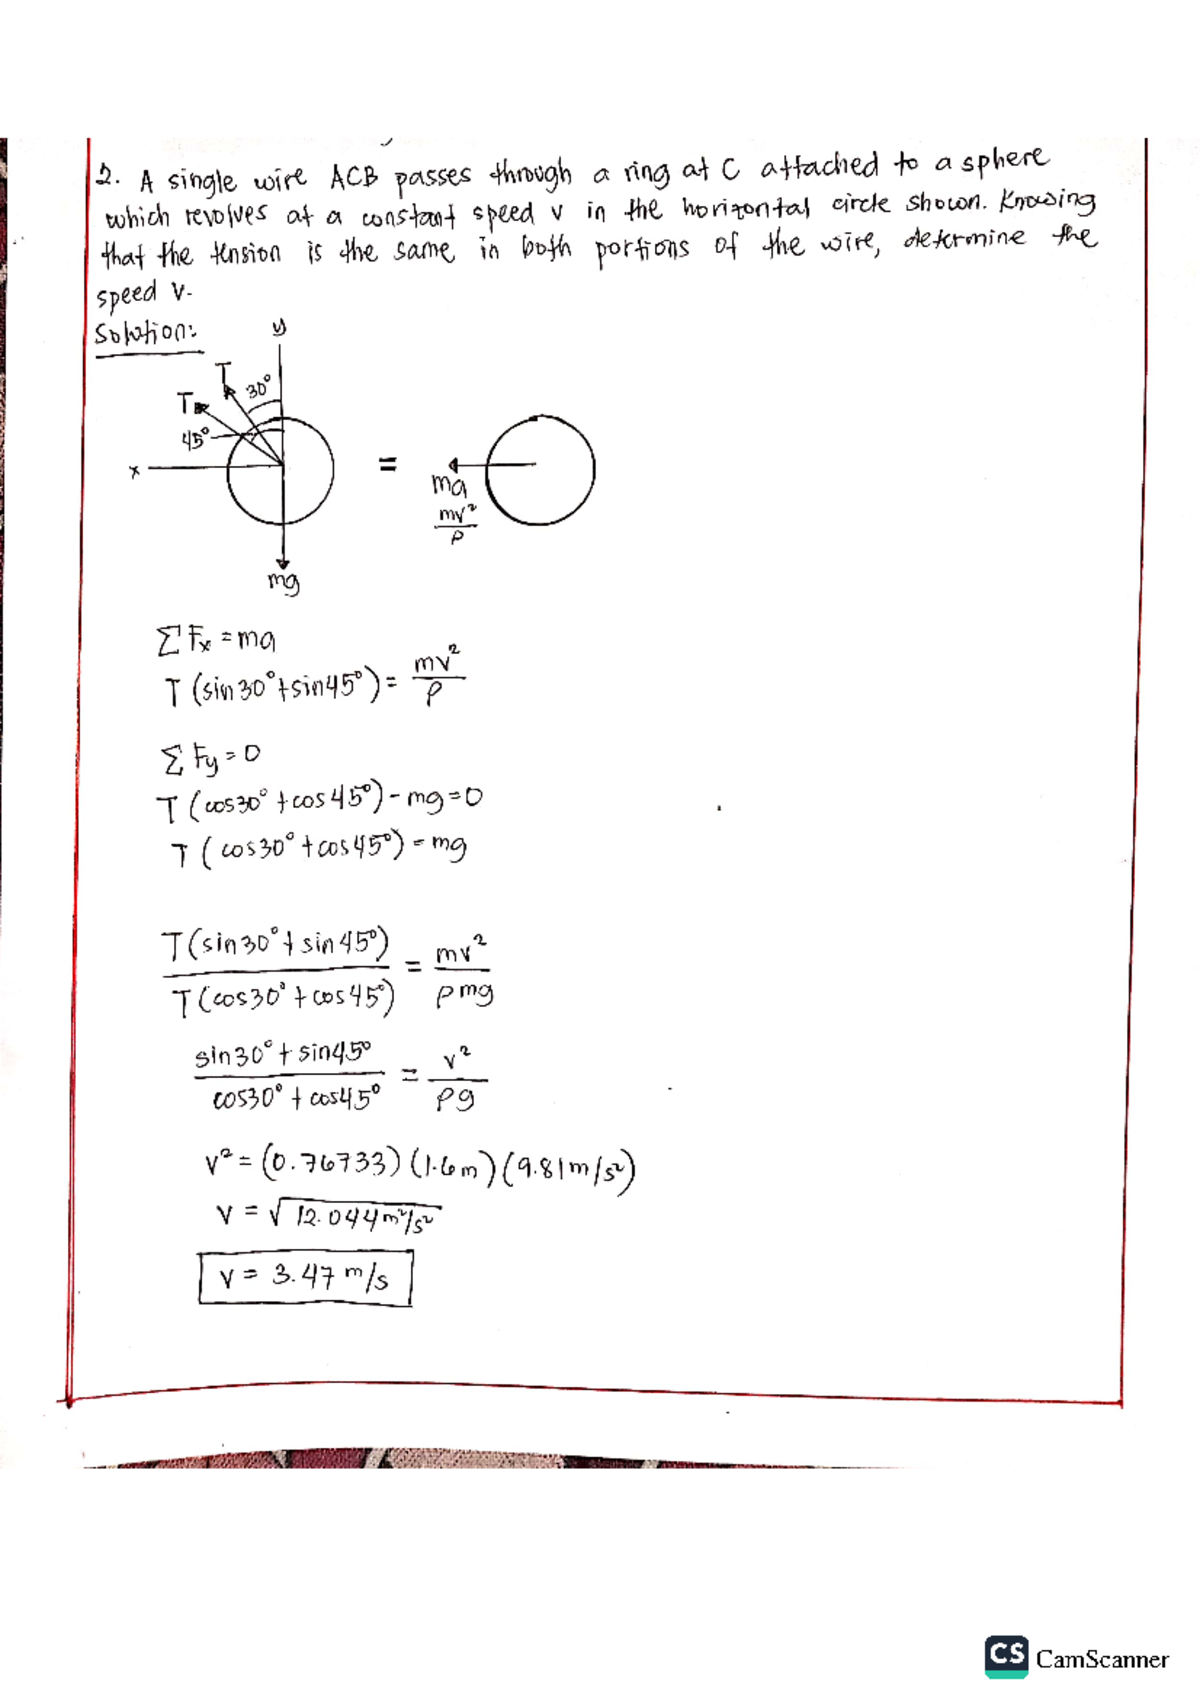 2. A single wire ACB passes through a ring at C attached to a sphere
which revolves at a constant speed v in the horizontal circle shown. Knowing
that the tension is the same in both portions of the wire, determine the
speed v.
Solution:
y
T
30°
T
45°
x
=
ma
mv²
ρ
mg
ΣFx = ma
T (sin30°+sin45°) = mv²/ρ
ΣFy = 0
T (cos30° + cos45°) - mg = 0
T (cos30° + cos45°) = mg
T(sin30° + sin45°) / T(cos30° + cos45°) = mv² / ρmg
sin30° + sin45° / cos30° + cos45° = v² / ρg
v² = (0.76733)(1.6m)(9.81m/s²)
v = √12.044m²/s²
v = 3.47 m/s
CS CamScanner